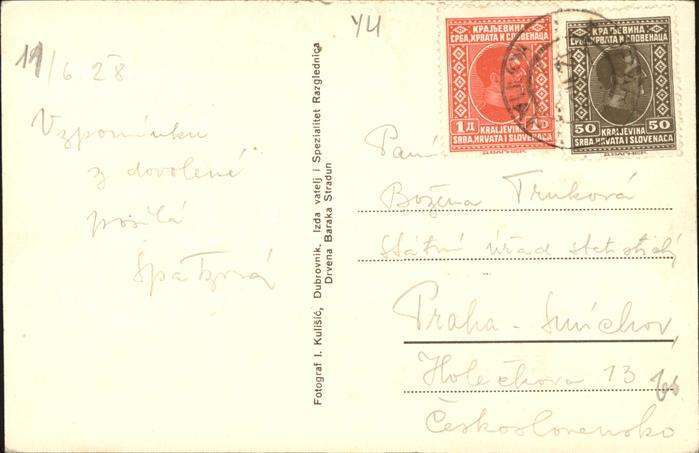 11/6 28
Vzpomínku
z dovolené
posílá
YU
КРАЉЕВИНА
СРБА, ХРВАТА И СЛОВЕНАЦА
1Д 1D
KRALJEVINA
SRBA, HRVATA I SLOVENACA
КРАЉЕВИНА
СРБА, ХРВАТА И СЛОВЕНАЦА
50 50
KRALJEVINA
SRBA, HRVATA I SLOVENACA
Fotograf I. Kulišić, Dubrovnik. Izda vatelj i Spezialitet Razglednica
Drvena Baraka Stradun
Paní
Božena Truková
Státní úřad statistický
Praha - Smíchov,
Holečkova 13
Československo